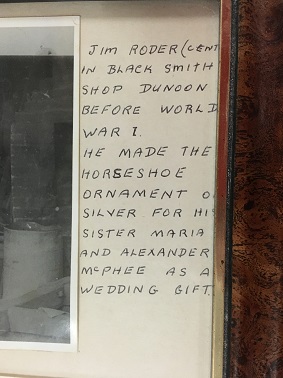 JIM RODER (CENT
IN BLACK SMITH
SHOP DUNOON
BEFORE WORLD
WAR 1.
HE MADE THE
HORSESHOE
ORNAMENT O
SILVER FOR HIS
SISTER MARIA
AND ALEXANDER
MCPHEE AS A
WEDDING GIFT.